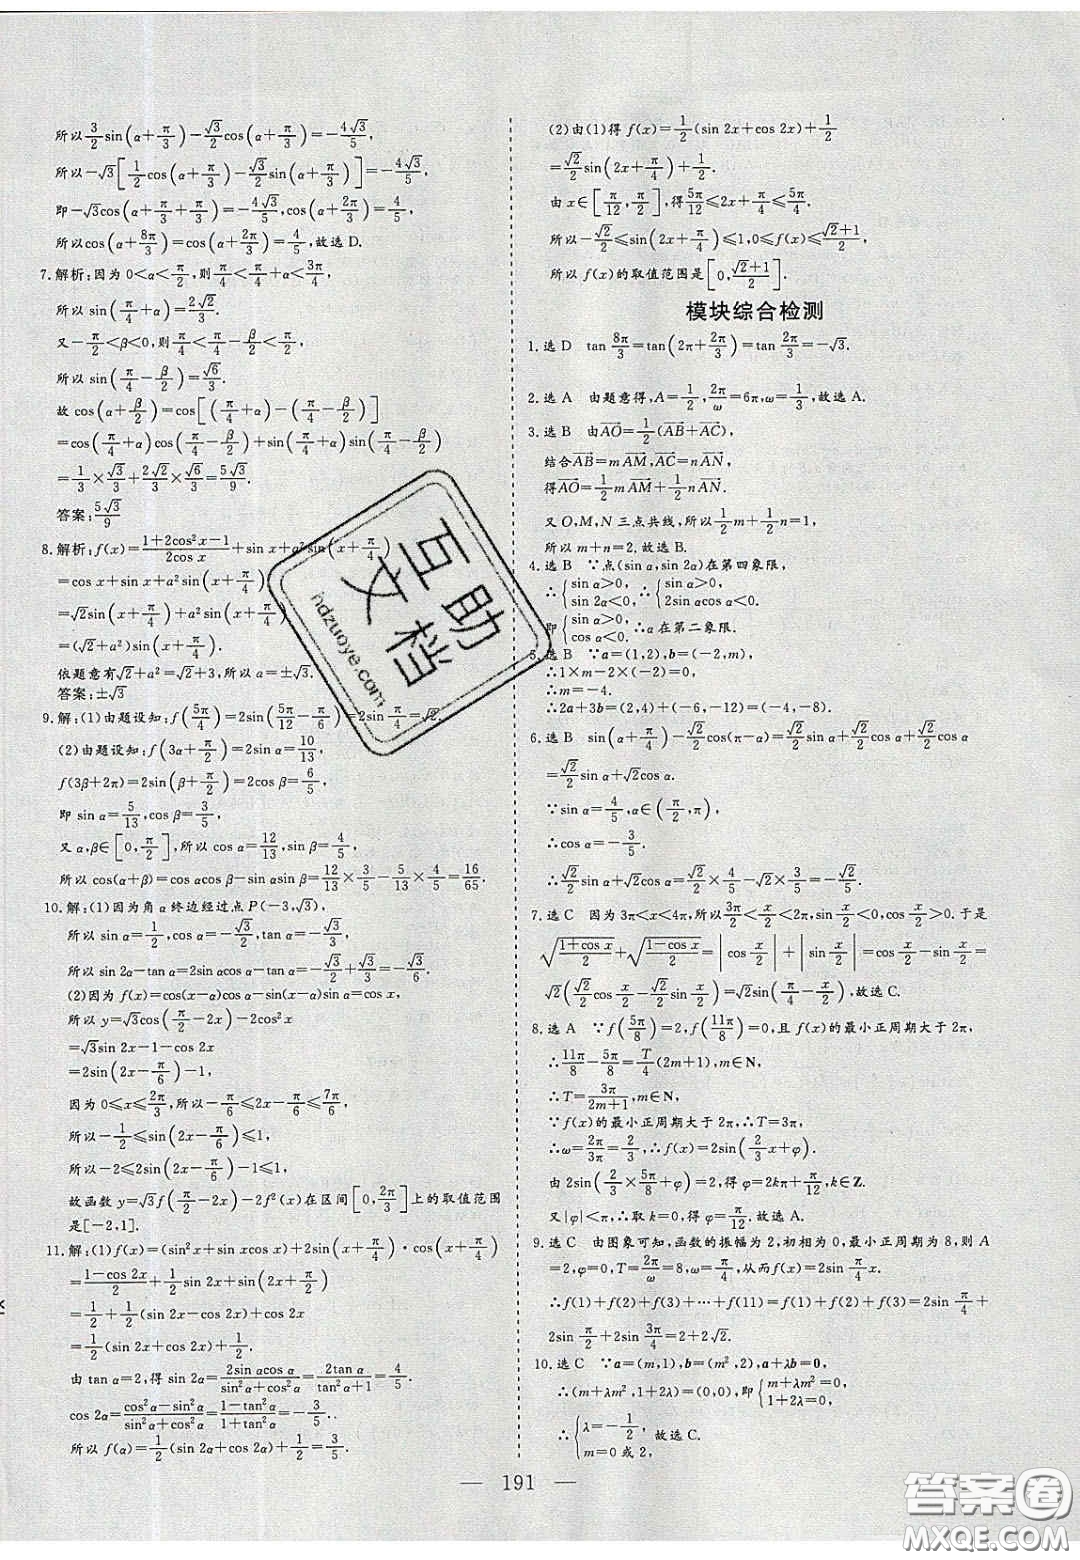 所以3/2sin(α+π/3)-√3/2cos(α+π/3)=-4√3/5,
所以-√3[1/2cos(α+π/3)-√3/2sin(α+π/3)]=-4√3/5,
即-√3cos(α+π/3+π/3)=-4√3/5,cos(α+2π/3)=4/5,
所以cos(α+8π/3)=cos(α+2π/3)=4/5,故选 D.
7.解析:因为 0<α<π/2,则π/4<π/4+α<3π/4,
所以 sin(π/4+α)=2√2/3.
又-π/2<β<0,则π/4<π/4-β/2<π/2,
所以 sin(π/4-β/2)=√6/3.
故 cos(α+β/2)=cos[(π/4+α)-(π/4-β/2)]
=cos(π/4+α)cos(π/4-β/2)+sin(π/4+α)sin(π/4-β/2)
=1/3×√3/3+2√2/3×√6/3=5√3/9.
答案:5√3/9
8.解析:f(x)=(1+2cos²x-1)/(2cos x)+sin x+a²sin(x+π/4)
=cos x+sin x+a²sin(x+π/4)
=√2sin(x+π/4)+a²sin(x+π/4)
=(√2+a²)sin(x+π/4).
依题意有√2+a²=√2+3,所以 a=±√3.
答案:±√3
9.解:(1)由题设知:f(5π/4)=2sin(5π/12-π/6)=2sin π/4=√2.
(2)由题设知:f(3α+π/2)=2sin α=10/13,
f(3β+2π)=2sin(β+π/2)=2cos β=6/5,
即 sin α=5/13,cos β=3/5,
又 α,β∈[0,π/2],所以 cos α=12/13,sin β=4/5,
所以 cos(α+β)=cos αcos β-sin αsin β=12/13×3/5-5/13×4/5=16/65.
10.解:(1)因为角 α 终边经过点 P(-3,√3),
所以 sin α=1/2,cos α=-√3/2,tan α=-√3/3,
所以 sin 2α-tan α=2sin αcos α-tan α=-√3/2+√3/3=-√3/6.
(2)因为 f(x)=cos(x-α)cos α-sin(x-α)sin α=cos x,
所以 y=√3cos(π/2-2x)-2cos²x
=√3sin 2x-1-cos 2x
=2sin(2x-π/6)-1,
因为 0≤x≤2π/3,所以-π/6≤2x-π/6≤7π/6,
所以-1/2≤sin(2x-π/6)≤1,
所以-2≤2sin(2x-π/6)-1≤1,
故函数 y=√3f(π/2-2x)-2f²(x)在区间[0,2π/3]上的取值范围
是[-2,1].
11.解:(1)f(x)=(sin²x+sin xcos x)+2sin(x+π/4)·cos(x+π/4)
=(1-cos 2x)/2+1/2sin 2x+sin(2x+π/2)
=1/2+1/2(sin 2x-cos 2x)+cos 2x
=1/2(sin 2x+cos 2x)+1/2.
由 tan α=2,得 sin 2α=2sin αcos α/(sin²α+cos²α)=2tan α/(tan²α+1)=4/5.
cos 2α=(cos²α-sin²α)/(sin²α+cos²α)=(1-tan²α)/(1+tan²α)=-3/5..
所以 f(α)=1/2(sin 2α+cos 2α)+1/2=3/5.
(2)由(1)得 f(x)=1/2(sin 2x+cos 2x)+1/2
=√2/2sin(2x+π/4)+1/2.
由 x∈[π/12,π/2],得5π/12≤2x+π/4≤5π/4.
所以-√2/2≤sin(2x+π/4)≤1,0≤f(x)≤(√2+1)/2,
所以 f(x)的取值范围是[0,(√2+1)/2].
模块综合检测
1.选 D tan 8π/3=tan(2π+2π/3)=tan 2π/3=-√3.
2.选 A 由题意得,A=1/2,2π/ω=6π,ω=1/3,故选 A.
3.选 B 由AO=1/2(AB+AC),
结合AB=mAM,AC=nAN,
得AO=1/2mAM+1/2nAN.
又 O,M,N 三点共线,所以1/2m+1/2n=1,
所以 m+n=2.故选 B.
4.选 B ∵点(sin α,sin 2α)在第四象限,
∴{sin α>0, sin 2α<0, ∴{sin α>0, 2sin αcos α<0.
即{sin α>0, cos α<0. ∴α 在第二象限.
5.选 B ∵a=(1,2),b=(-2,m),
∴1×m-2×(-2)=0,
∴m=-4.
∴2a+3b=(2,4)+(-6,-12)=(-4,-8).
6.选 B sin(α+π/4)-√2/2cos(π-α)=√2/2sin α+√2/2cos α+√2/2cos α
=√2/2sin α+√2cos α.
∵sin α=4/5,α∈(π/2,π),
∴cos α=-3/5.
∴√2/2sin α+√2cos α=√2/2×4/5-√2×3/5=-√2/5.
7.选 C 因为 3π<x<4π,所以3π/2<x/2<2π,sin x/2<0,cos x/2>0.于是
√((1+cos x)/2)+√((1-cos x)/2)=|cos x/2|+|sin x/2|=cos x/2-sin x/2=
√2(√2/2cos x/2-√2/2sin x/2)=√2sin(π/4-x/2),故选 C.
8.选 A ∵f(5π/8)=2,f(11π/8)=0,且 f(x)的最小正周期大于 2π,
∴11π/8-5π/8=T/4(2m+1),m∈N,
∴T=3π/(2m+1),m∈N.
∵f(x)的最小正周期大于 2π,∴T=3π,
∴ω=2π/3π=2/3,∴f(x)=2sin(2/3x+φ).
由 2sin(2/3×5π/8+φ)=2,得 φ=2kπ+π/12,k∈Z.
又|φ|<π,∴取 k=0,得 φ=π/12.故选 A.
9.选 C 由图象可知,函数的振幅为 2,初相为 0,最小正周期为 8,则 A
=2,φ=0,T=2π/ω=8,ω=π/4,从而 f(x)=2sin π/4x.
∴f(1)+f(2)+f(3)+…+f(11)=f(1)+f(2)+f(3)=2sin π/4+
2sin π/2+2sin 3π/4=2+2√2.
10.选 C ∵a=(m,1),b=(m²,2),a+λb=0,
∴(m+λm²,1+2λ)=(0,0),即{m+λm²=0, 1+2λ=0,
∴{λ=-1/2, m=0 或 2, 故选 C.
191
互助文档
hdzuoye.com
答案圈
MXQE.COM